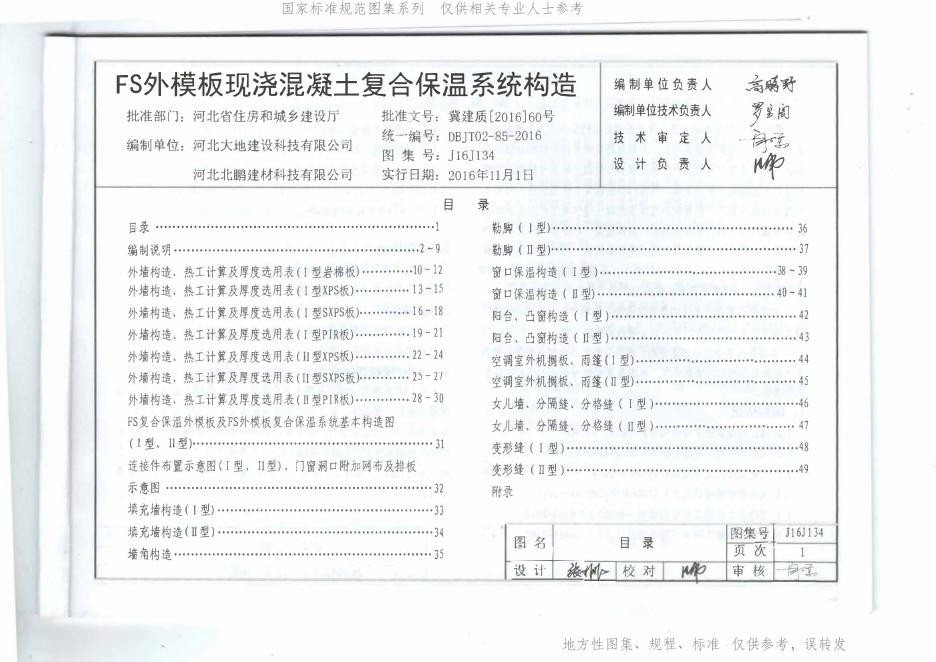 国家标准规范图集系列 仅供相关专业人士参考
FS外模板现浇混凝土复合保温系统构造
批准部门：河北省住房和城乡建设厅
编制单位：河北大地建设科技有限公司
河北北鹏建材科技有限公司
批准文号：冀建质[2016]60号
统一编号：DBJT02-85-2016
图 集 号：J16J134
实行日期：2016年11月1日
编制单位负责人
编制单位技术负责人
技 术 审 定 人
设 计 负 责 人
目 录
目录 1
编制说明 2-9
外墙构造、热工计算及厚度选用表(Ⅰ型岩棉板) 10-12
外墙构造、热工计算及厚度选用表(Ⅰ型XPS板) 13-15
外墙构造、热工计算及厚度选用表(Ⅰ型SXPS板) 16-18
外墙构造、热工计算及厚度选用表(Ⅰ型PIR板) 19-21
外墙构造、热工计算及厚度选用表(Ⅱ型XPS板) 22-24
外墙构造、热工计算及厚度选用表(Ⅱ型SXPS板) 25-27
外墙构造、热工计算及厚度选用表(Ⅱ型PIR板) 28-30
FS复合保温外模板及FS外模板复合保温系统基本构造图
(Ⅰ型、Ⅱ型) 31
连接件布置示意图(Ⅰ型、Ⅱ型)、门窗洞口附加网布及排板
示意图 32
填充墙构造(Ⅰ型) 33
填充墙构造(Ⅱ型) 34
墙角构造 35
勒脚(Ⅰ型) 36
勒脚(Ⅱ型) 37
窗口保温构造(Ⅰ型) 38-39
窗口保温构造(Ⅱ型) 40-41
阳台、凸窗构造(Ⅰ型) 42
阳台、凸窗构造(Ⅱ型) 43
空调室外机搁板、雨篷(Ⅰ型) 44
空调室外机搁板、雨篷(Ⅱ型) 45
女儿墙、分隔缝、分格缝(Ⅰ型) 46
女儿墙、分隔缝、分格缝(Ⅱ型) 47
变形缝(Ⅰ型) 48
变形缝(Ⅱ型) 49
附录
图 名 目 录 图集号 J16J134
页 次 1
设 计 校 对 审 核
地方性图集、规程、标准 仅供参考，误转发